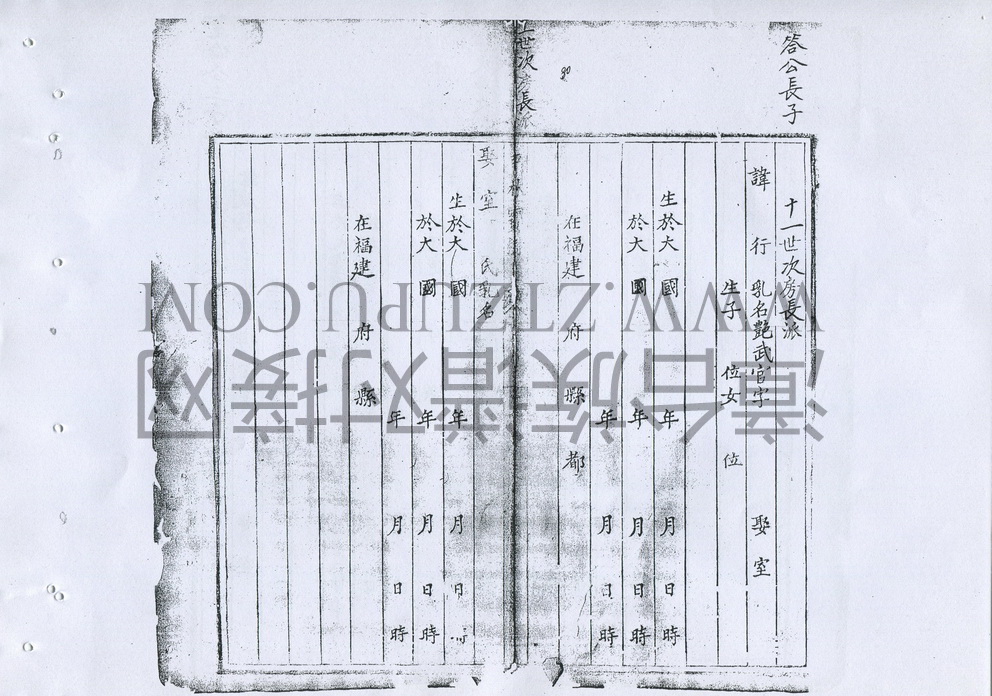 答公長子
十一世次房長派
諱 行 乳名艷武官字 娶室
生子 位女 位
生於大 國 年 月 日 時
於大 國 年 月 日 時
年 月 日 時
在福建 府 縣 都
世次房長派
娶室 氏乳名
生於大 國 年 月 日 時
於大 國 年 月 日 時
年 月 日 時
在福建 府 縣
漳台族谱对接网
WWW.ZTZUPU.COM